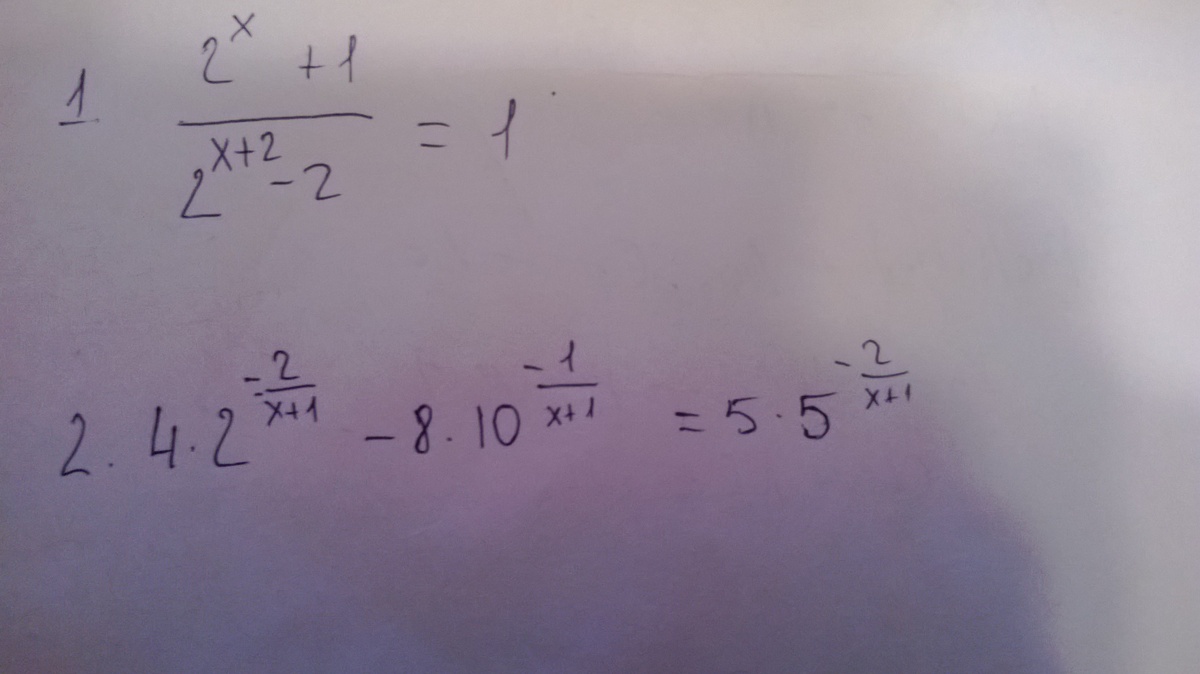 1 (2^x + 1)/(2^(x+2) - 2) = 1
2. 4·2^(-2/(x+1)) - 8·10^(-1/(x+1)) = 5·5^(-2/(x+1))